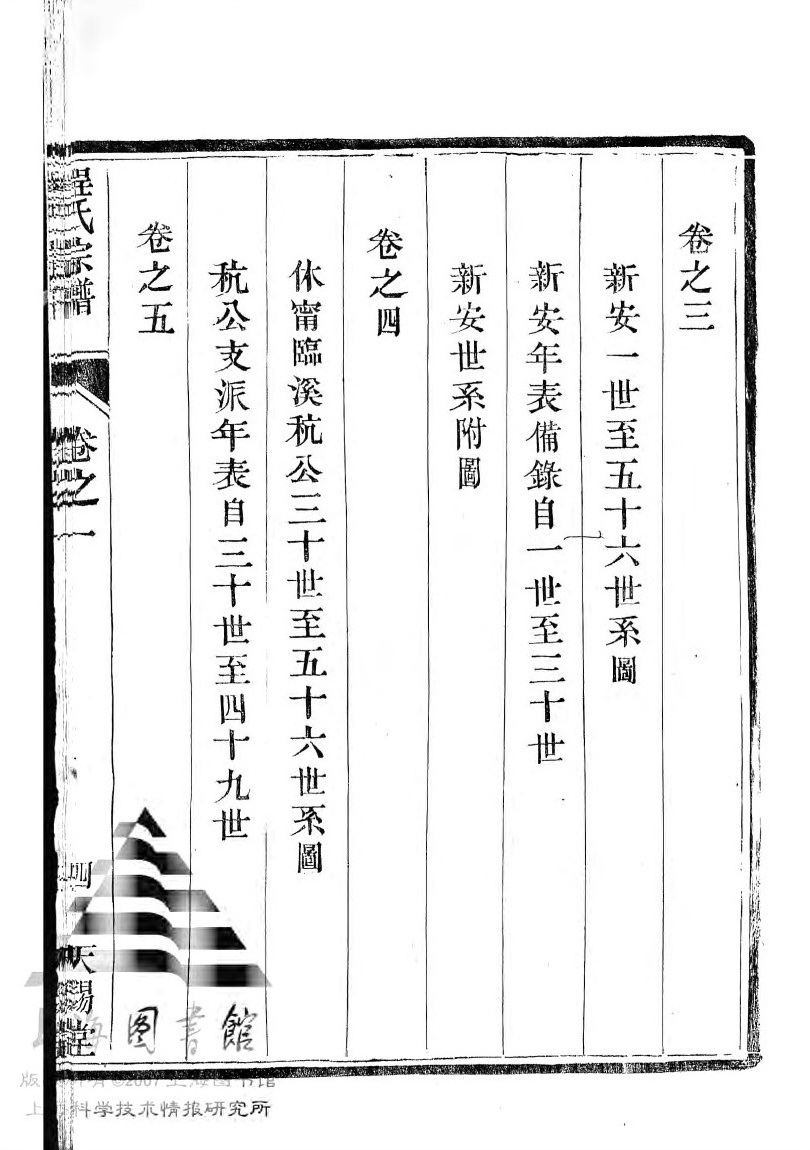 卷之三
新安一世至五十六世系圖
新安年表備錄自一世至三十世
新安世系附圖
卷之四
休甯臨溪秔公三十世至五十六世系圖
秔公支派年表自三十世至四十九世
卷之五
程氏宗譜
卷之一
四
天錫堂
上海图書館
版权所有©2007上海图书馆
上海科学技术情报研究所